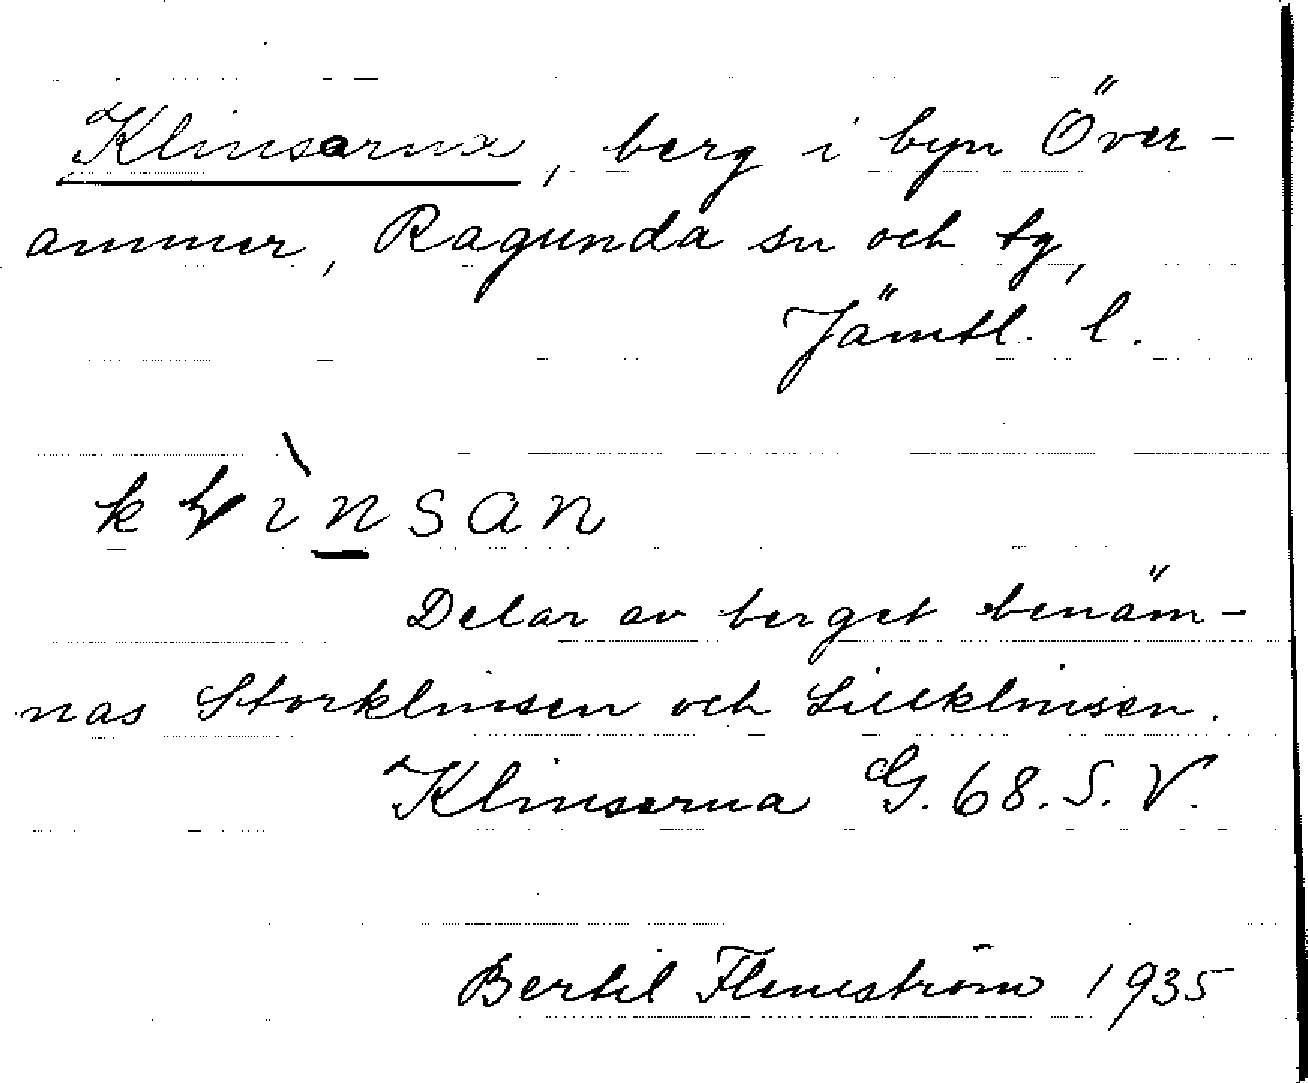 Klinsarna, berg i byn Över-
ammer, Ragunda sn och tg,
Jämtl. l.
Delar av berget benäm-
nas Storklinsen och Lillklinsen.
Klinserna G. 68. S. V.
Bertil Flemström 1935